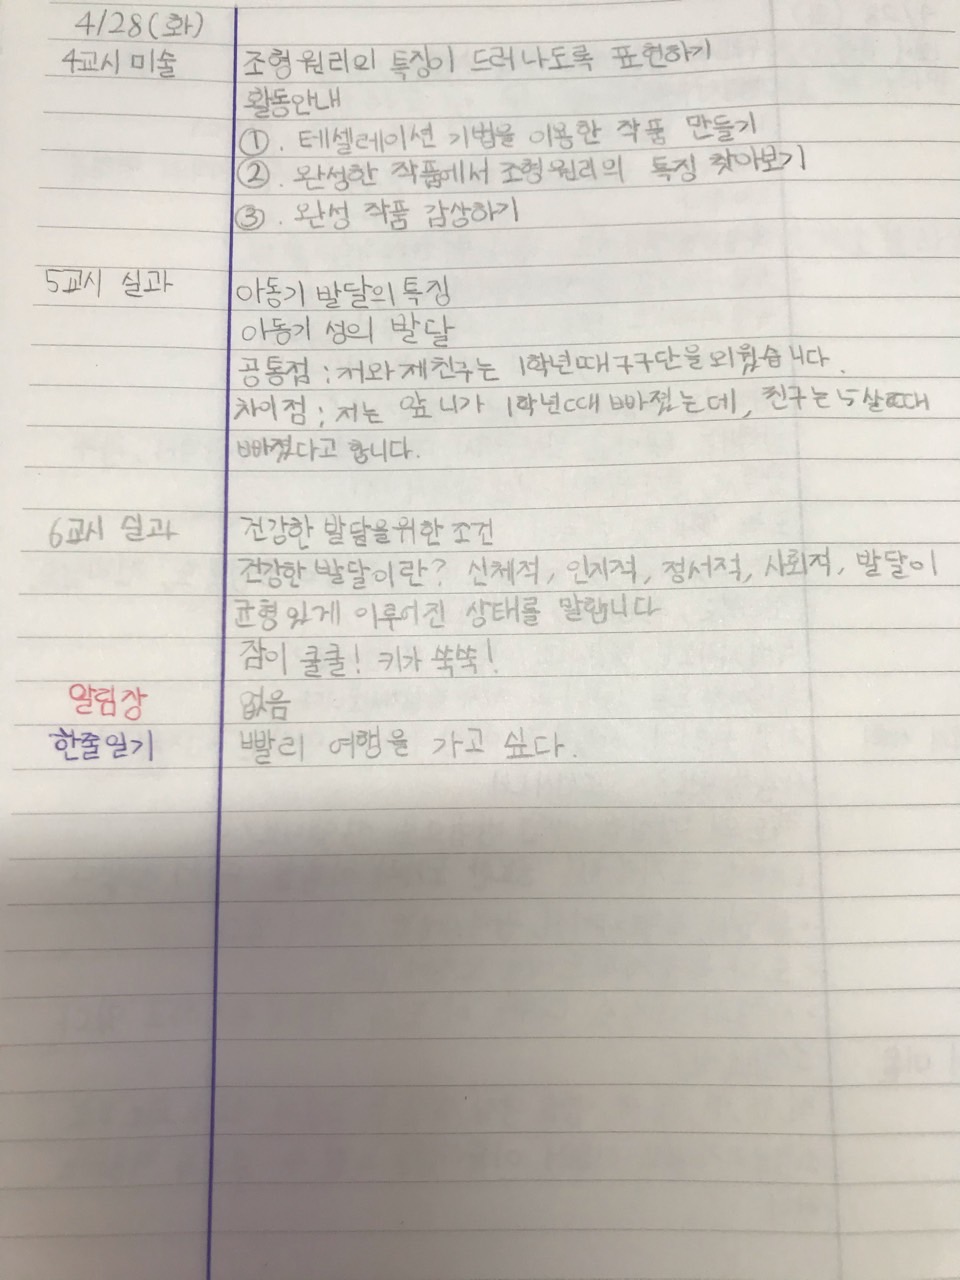 4/28(화)
4교시 미술 조형원리의 특징이 드러나도록 표현하기
활동안내
①. 테셀레이션 기법을 이용한 작품 만들기
②. 완성한 작품에서 조형원리의 특징 찾아보기
③. 완성 작품 감상하기
5교시 실과 아동기 발달의 특징
아동기 성의 발달
공통점 : 저와 제친구는 1학년때 구구단을 외웠습니다.
차이점 : 저는 앞니가 1학년때 빠졌는데, 친구는 5살때
빠졌다고 합니다.
6교시 실과 건강한 발달을위한 조건
건강한 발달이란? 신체적, 인지적, 정서적, 사회적, 발달이
균형있게 이루어진 상태를 말합니다
잠이 쿨쿨! 키가 쑥쑥!
알림장 없음
한줄일기 빨리 여행을 가고 싶다.